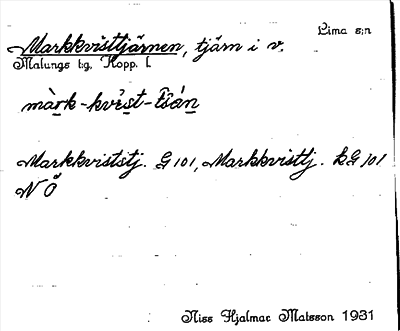 Lima s:n
Markkvisttjärnen, tjärn i v.
Malungs t:g. Kopp. l.
màrk-kvist-tšán
Markkviststj. G 101, Markkvisttj. LG 101
N Ö
Niss Hjalmar Matsson 1931